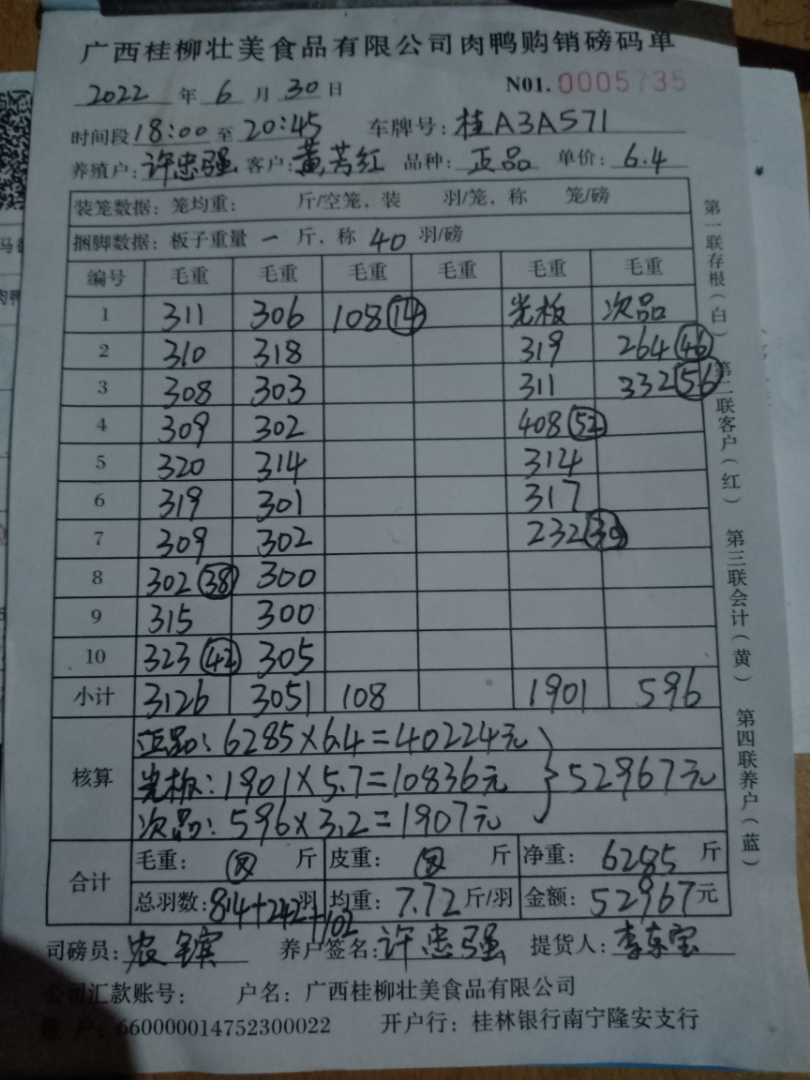 广西桂柳壮美食品有限公司肉鸭购销磅码单
2022 年 6 月 30 日 N01. 0005735
时间段 18:00 至 20:45 车牌号: 桂A3A571
养殖户: 许忠强 客户: 黄芳红 品种: 正品 单价: 6.4
装笼数据: 笼均重: 斤/空笼, 装 羽/笼, 称 笼/磅
捆脚数据: 板子重量 一 斤, 称 40 羽/磅
编号 毛重 毛重 毛重 毛重 毛重 毛重
1 311 306 108 (14) 光板 次品
2 310 318 319 264 (46)
3 308 303 311 332 (56)
4 309 302 408 (52)
5 320 314 314
6 319 301 317
7 309 302 232 (30)
8 302 (38) 300
9 315 300
10 323 (42) 305
小计 3126 3051 108 1901 596
核算
正品: 6285×6.4=40224元
光板: 1901×5.7=10836元 } 52967元
次品: 596×3.2=1907元
合计
毛重: 斤 皮重: 斤 净重: 6285 斤
总羽数: 814+242+102 羽 均重: 7.72 斤/羽 金额: 52967 元
司磅员: 农镔 养户签名: 许忠强 提货人: 李东宝
公司汇款账号: 户名: 广西桂柳壮美食品有限公司
户: 660000014752300022 开户行: 桂林银行南宁隆安支行
第一联存根(白)
第二联客户(红)
第三联会计(黄)
第四联养户(蓝)